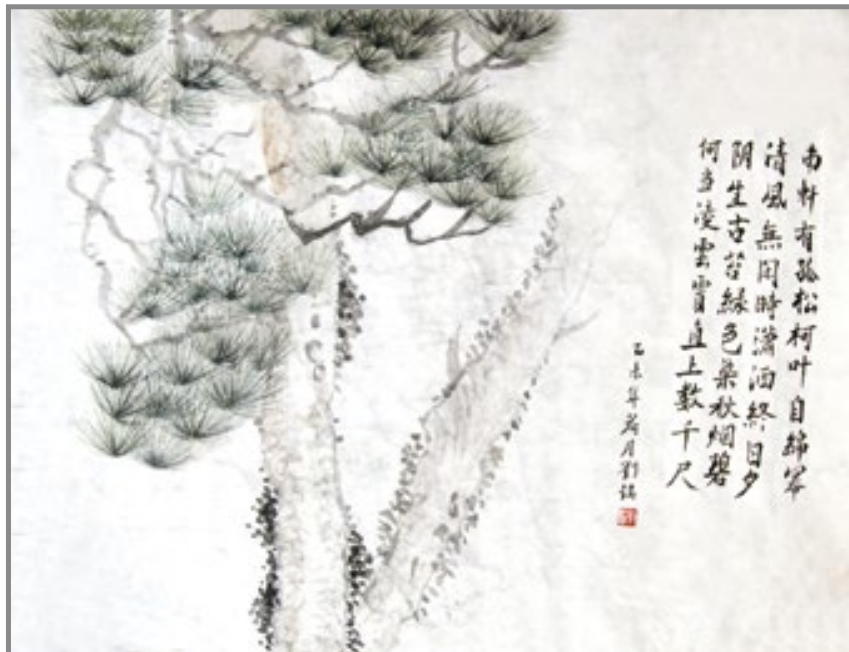 南軒有孤松柯叶自綿冪
清風無閑時瀟洒終日夕
阴生古苔緑色染秋烟碧
何当淩雲霄直上数千尺
乙未年 月劉